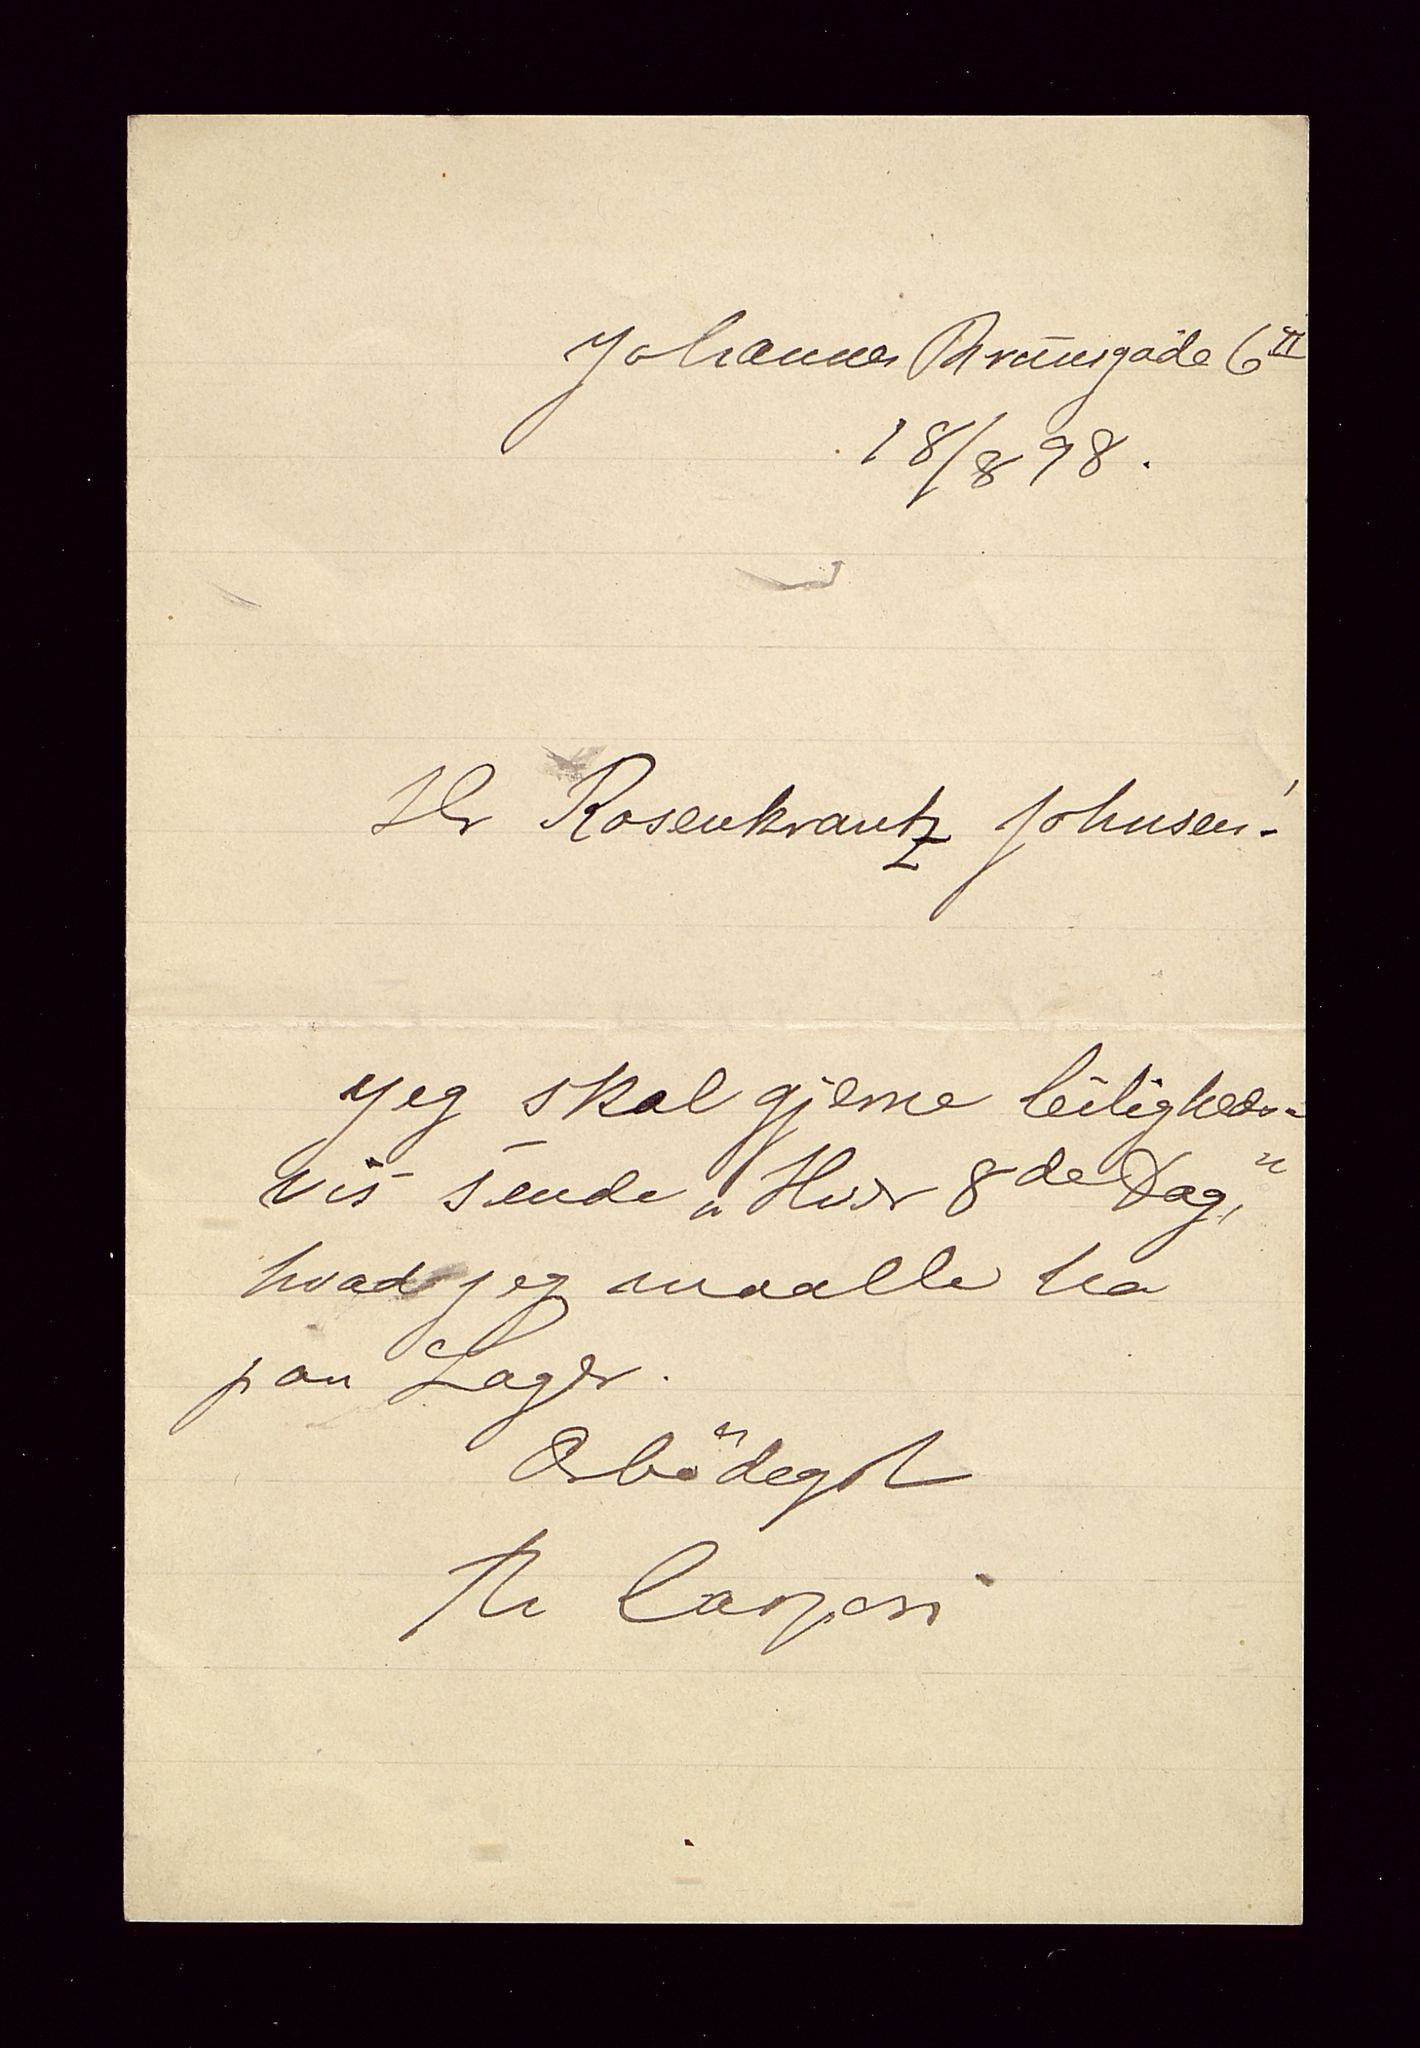 Johannes Brunsgade 6 II
18/8 98.
Hr Rosenkrantz Johnsen!
Jeg skal gjerne leiligheds-
vis sende „Hver 8de Dag,"
hvad jeg maatte ha
paa Lager.
Ærbödigst
Th Caspari